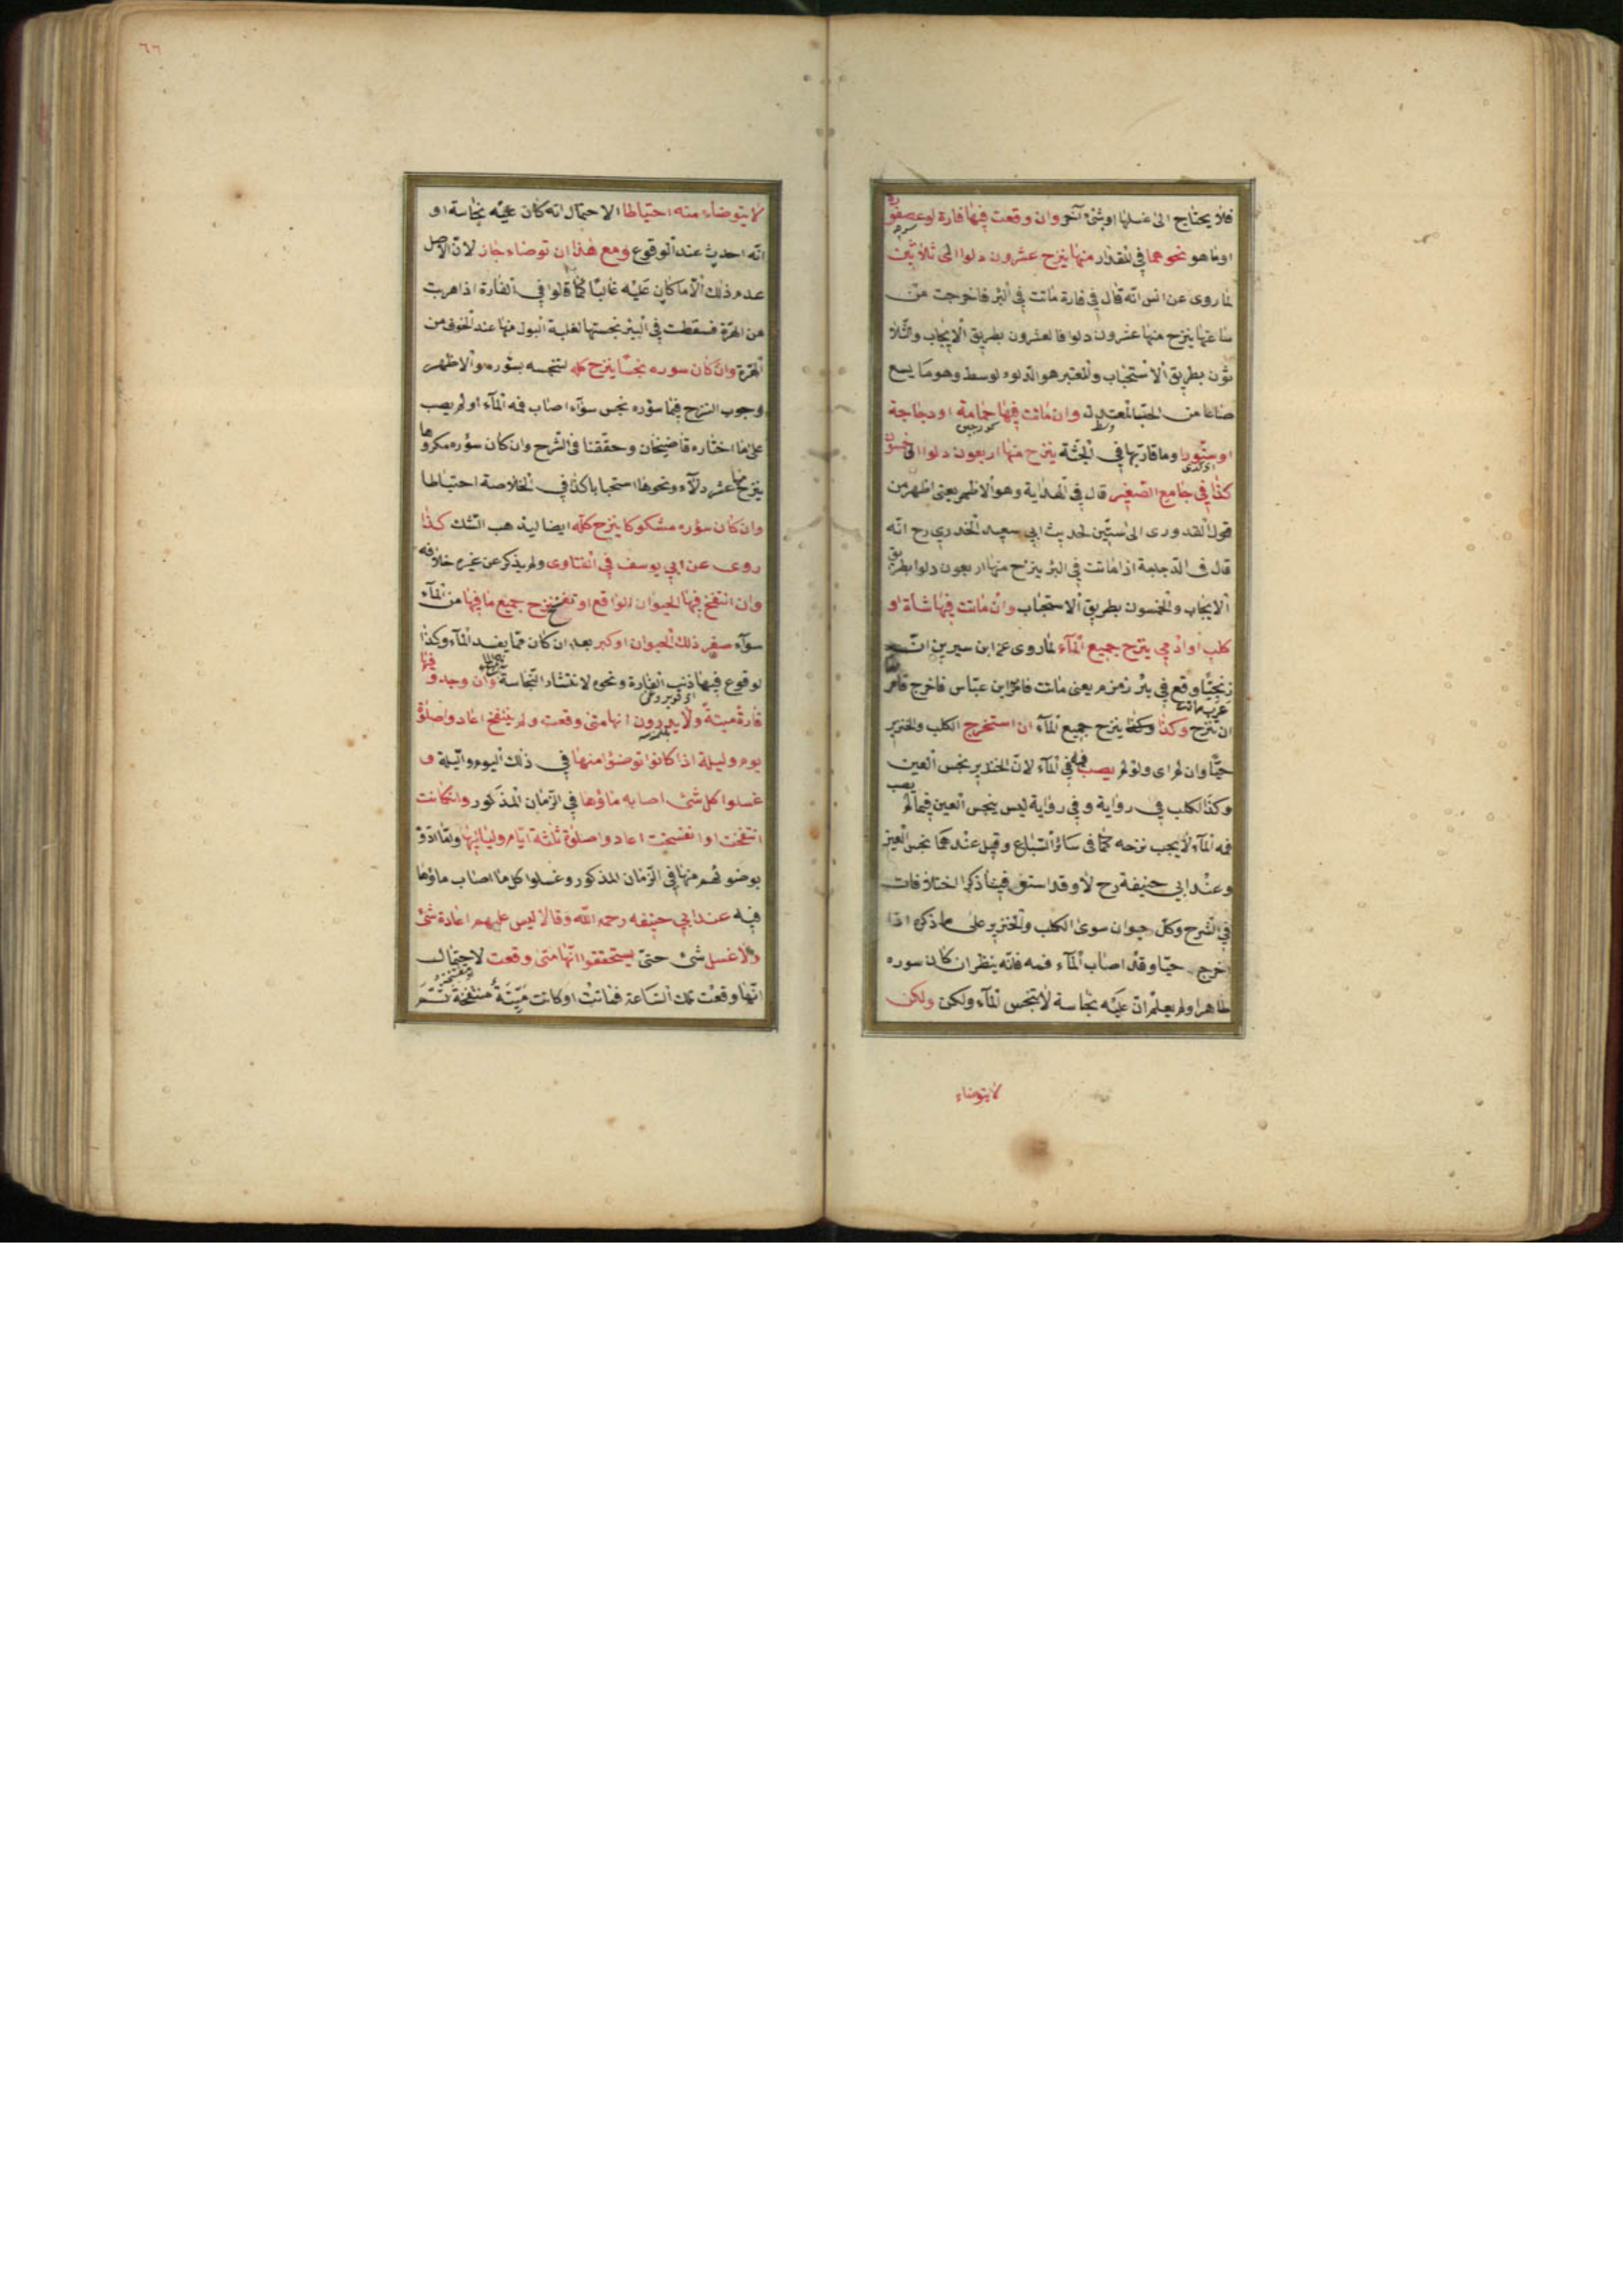 فلا يحتاج الى غسلها اوشئ آخر وان وقعت فيها فارة او عصفورة
اوما هو نحوهما في المقدار منها ينزح عشرون دلوا الى ثلاثين
لما روى عن انس انه قال في فارة ماتت في البئر فاخرجت من
ساعتها ينزح منها عشرون دلوا فالعشرون بطريق الايجاب والثلا
ثون بطريق الاستحباب والمعتبر هو الدلو الوسط وهو ما يسع
صاعا من الحب المعتدل وان ماتت فيها حمامة او دجاجة
او سنور وما قاربها في الجثة ينزح منها اربعون دلوا الى خمسون
كذا في جامع الصغير قال في الهداية وهو الاظهر يعنى اظهر من
قول القدورى الى ستين لحديث ابى سعيد الخدرى رح انه
قال فى الدجاجة اذا ماتت في البئر ينزح منها اربعون دلوا بطريق
الايجاب والخمسون بطريق الاستحباب وان ماتت فيها شاة او
كلب او ادمي ينزح جميع المآء لما روى عن ابن سيرين ان
زنجيا وقع في بئر زمزم يعنى مات فامر ابن عباس فاخرج فامر
ان تنزح وكذا ينزح جميع المآء ان استخرج الكلب والخنزير
حيا وان لم اى ولو لم يصب فمه في المآء لان الخنزير نجس العين
وكذا الكلب في رواية و في رواية ليس بنجس العين فيما لم يصب
فمه المآء لا يجب نزحه كما فى سائر السباع وقيل عندهما نجس العين
وعند ابى حنيفة رح لا وقد استوفينا ذكر اختلافات
في الشرح وكل حيوان سوى الكلب والخنزير على ما ذكره اذا
اخرج حيا وقد اصاب المآء فمه فانه ينظر ان كان سوره
طاهرا ولم يعلم ان عليه نجاسة لا يتنجس المآء ولكن ولكن
لايتوضاء
٦٦
لا يتوضاء منه احتياطا الاحتمال انه كان عليه نجاسة او
انه احدث عند الوقوع ومع هذا ان توضاء جاز لان الاصل
عدم ذلك الا ما كان عليه غالبا كما قالوا في الفارة اذا هربت
من الهرة فسقطت في البئر نجستها لغلبة البول منها عند الخوف من
الهرة وان كان سوره نجسا ينزح كله لتنجسه بسوره والاظهر
وجوب النزح فيما سؤره نجس سوآء اصاب فمه المآء او لم يصب
على ما اختاره قاضيخان وحققنا فى الشرح وان كان سؤره مكروها
ينزح منها عشر دلآء ونحوها استحبابا كذا في الخلاصة احتياطا
وان كان سؤره مشكوكا ينزح كله ايضا ليذهب الشك كذا
روى عن ابي يوسف في الفتاوى ولم يذكر عن غيره خلافه
وان انتفخ فيها الحيوان الواقع او تفسخ ينزح جميع ما فيها من المآء
سوآء صغر ذلك الحيوان او كبر بعد ان كان مما يفسد المآء وكذا
لو وقوع فيها ذنب الفارة ونحوه لانتشار النجاسة وان وجدو فيها
فارة ميتة ولا يدرون انها متى وقعت ولم ينتفخ اعادوا صلوة
يوم وليلة اذا كانوا توضؤا منها في ذلك اليوم والليلة و
غسلوا كل شئ اصابه ماؤها في الزمان المذكور وان كانت
انتفخت او تفسخت اعادوا صلوة ثلثة ايام ولياليها
بوضوئهم منها في الزمان المذكور وغسلوا كل ما اصاب ماؤها
فيه عند ابي حنيفه رحمه الله وقالا ليس عليهم اعادة شئ
ولا غسل شئ حتى يستحققوا انها متى وقعت لاحتمال
انها وقعت تلك الساعة فماتت او كانت ميتة منتفخة